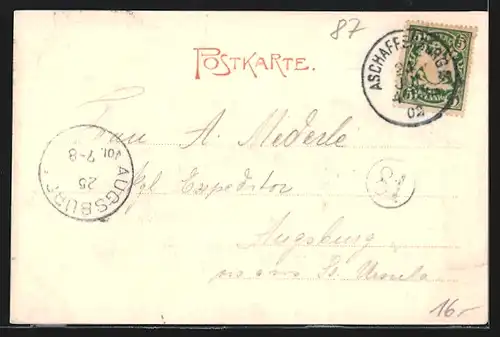 87
POSTKARTE.
ASCHAFFENBURG
02
5
Frau A. Mederle
kgl Expeditor
Augsburg
St. Ursula
AUGSBURG
25
VOR. 7-8
81
16-